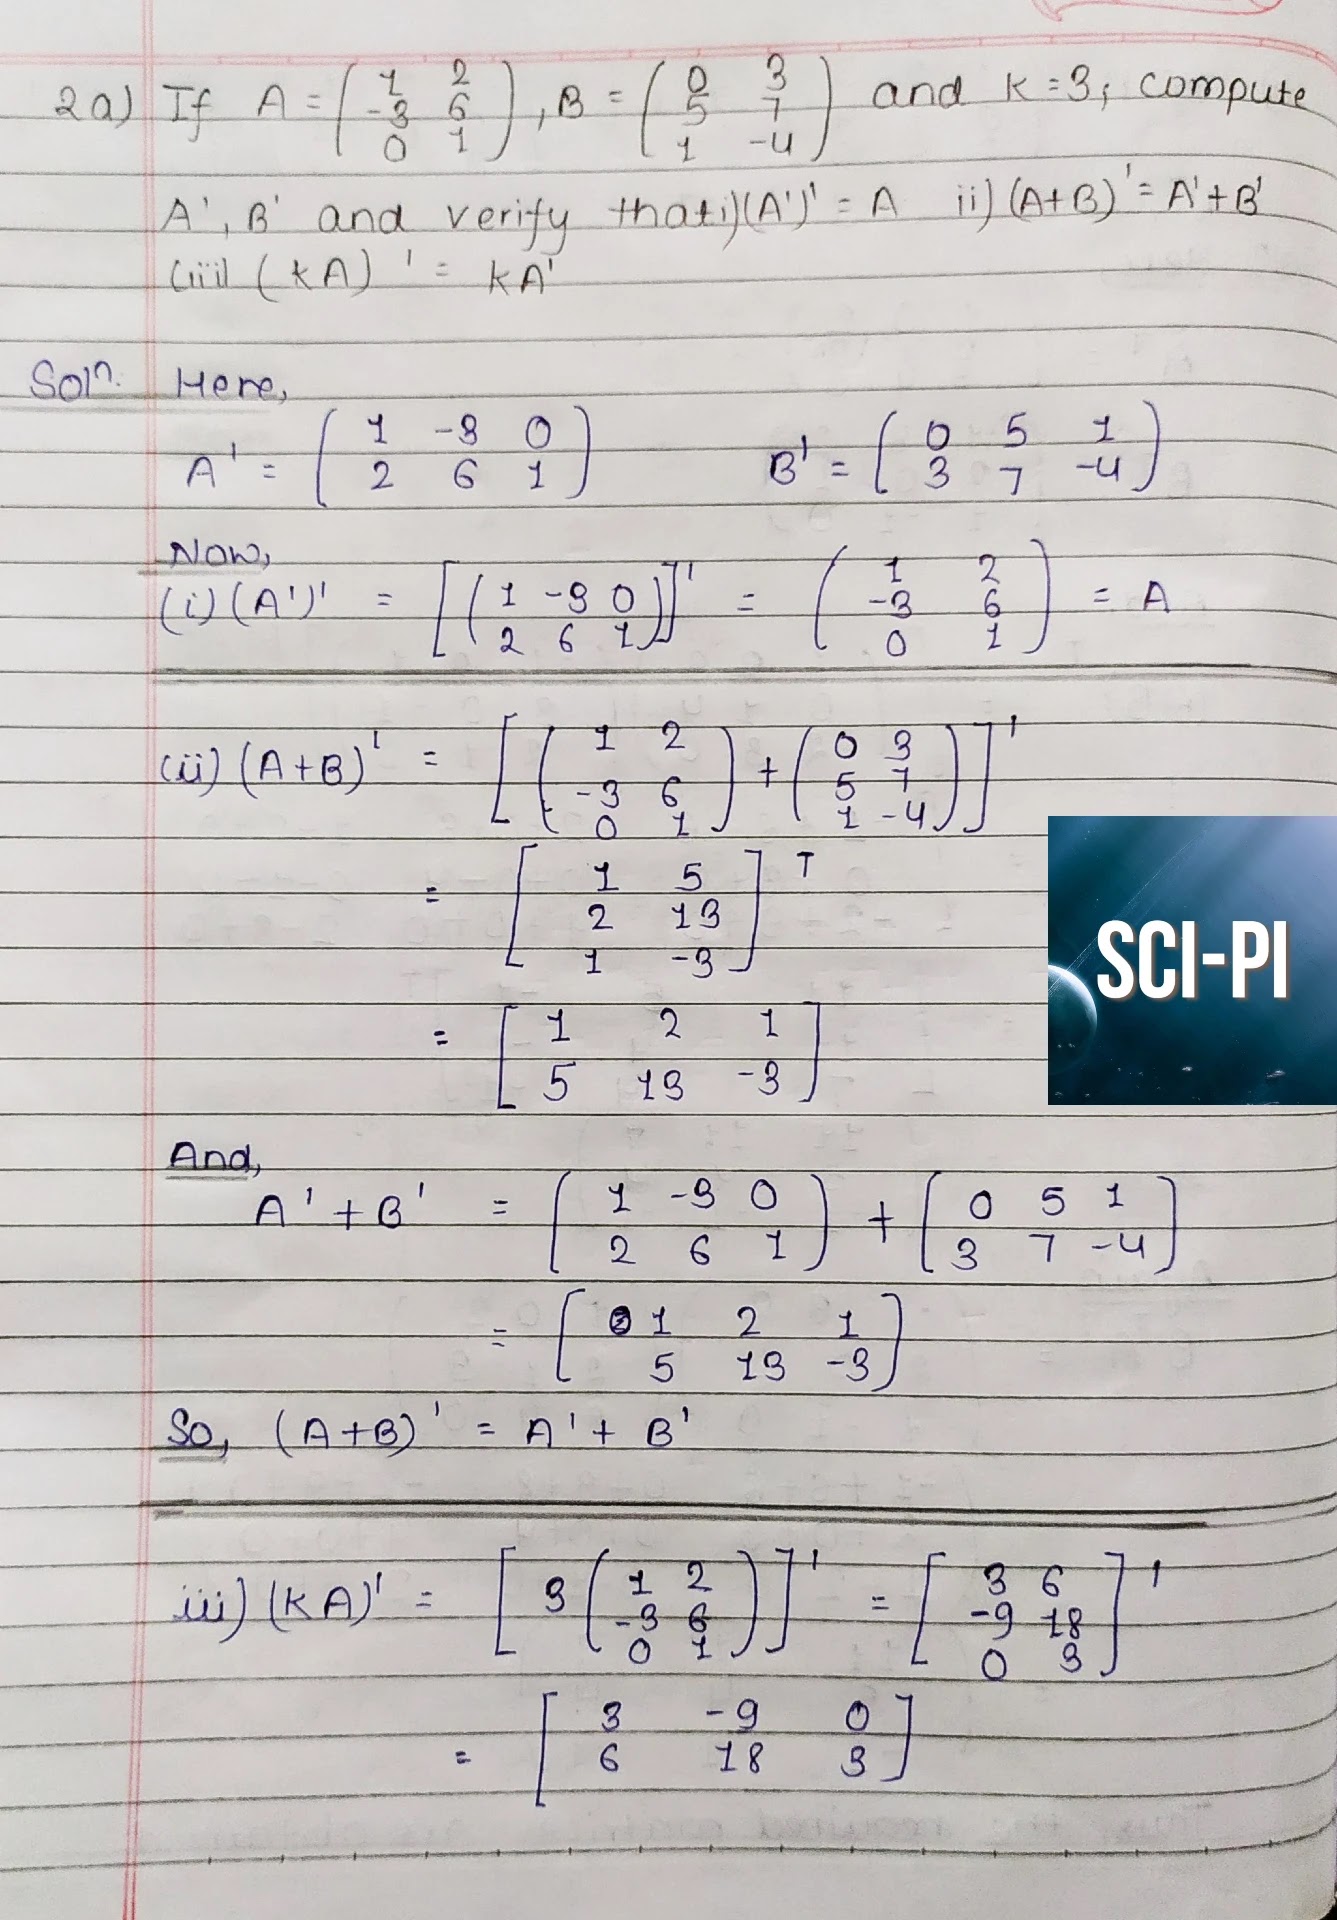 2a) If A = ( 1 2 ; -3 6 ; 0 1 ), B = ( 0 3 ; 5 7 ; 1 -4 ) and k = 3, compute
A', B' and verify that i) (A')' = A ii) (A+B)' = A'+B'
(iii) (kA)' = kA'
Soln. Here,
A' = ( 1 -3 0 ; 2 6 1 ) B' = ( 0 5 1 ; 3 7 -4 )
Now,
(i) (A')' = [ ( 1 -3 0 ; 2 6 1 ) ]' = ( 1 2 ; -3 6 ; 0 1 ) = A
(ii) (A+B)' = [ ( 1 2 ; -3 6 ; 0 1 ) + ( 0 3 ; 5 7 ; 1 -4 ) ]'
= [ 1 5 ; 2 13 ; 1 -3 ] T
SCI-PI
= [ 1 2 1 ; 5 13 -3 ]
And,
A' + B' = ( 1 -3 0 ; 2 6 1 ) + [ 0 5 1 ; 3 7 -4 ]
= [ 1 2 1 ; 5 13 -3 ]
So, (A+B)' = A' + B'
iii) (kA)' = [ 3 ( 1 2 ; -3 6 ; 0 1 ) ]' = [ 3 6 ; -9 18 ; 0 3 ]'
= [ 3 -9 0 ; 6 18 3 ]